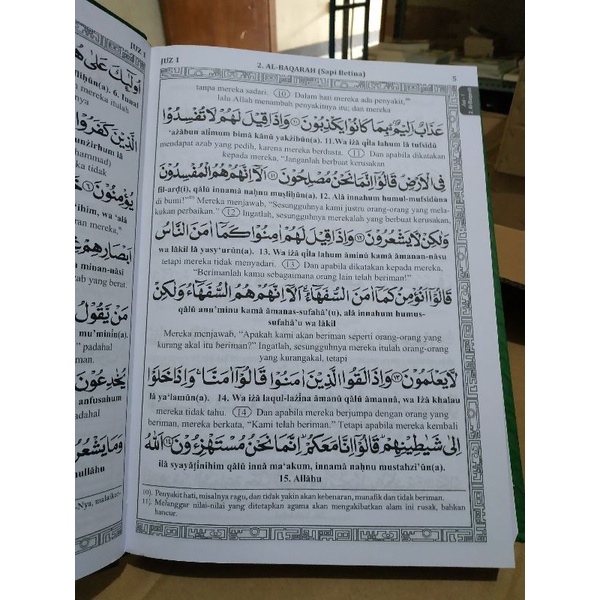 JUZ 1
أُولَٰئِكَ عَلَىٰ هُ
الَّذِيْنَ كَفَرُوْا
يُؤْمِنُوْنَ
اَبْصَارِهِمْ
مَنْ يَّقُوْلُ
يُخٰدِعُوْنَ
وَمَا يَشْعُرُ
JUZ 1
2. AL-BAQARAH (Sapi Betina)
5
tanpa mereka sadari. (10) Dalam hati mereka ada penyakit,
lalu Allah menambah penyakitnya itu; dan mereka
عَذَابٌ اَلِيْمٌ ۢ بِمَا كَانُوْا يَكْذِبُوْنَ ۝١١ وَاِذَا قِيْلَ لَهُمْ لَا تُفْسِدُوْا
'ażābun alīmum bimā kānū yakżibūn(a). 11. Wa iżā qīla lahum lā tufsidū
mendapat azab yang pedih, karena mereka berdusta. (11) Dan apabila dikatakan
kepada mereka, "Janganlah berbuat kerusakan
فِى الْاَرْضِ قَالُوْٓا اِنَّمَا نَحْنُ مُصْلِحُوْنَ ۝ اَلَآ اِنَّهُمْ هُمُ الْمُفْسِدُوْنَ
fil-arḍ(i), qālū innamā naḥnu muṣliḥūn(a). 12. Alā innahum humul-mufsidūna
di bumi!" Mereka menjawab, "Sesungguhnya kami justru orang-orang yang mela-
kukan perbaikan." (12) Ingatlah, sesungguhnya merekalah yang berbuat kerusakan,
وَلٰكِنْ لَّا يَشْعُرُوْنَ ۝ وَاِذَا قِيْلَ لَهُمْ اٰمِنُوْا كَمَآ اٰمَنَ النَّاسُ
wa lākil lā yasy'urūn(a). 13. Wa iżā qīla lahum āminū kamā āmanan-nāsu
tetapi mereka tidak menyadari. (13) Dan apabila dikatakan kepada mereka,
"Berimanlah kamu sebagaimana orang lain telah beriman!"
قَالُوْٓا اَنُؤْمِنُ كَمَآ اٰمَنَ السُّفَهَاۤءُ ۗ اَلَآ اِنَّهُمْ هُمُ السُّفَهَاۤءُ وَلٰكِنْ
qālū anu'minu kamā āmanas-sufahā'(u), alā innahum humus-
sufahā'u wa lākil
Mereka menjawab, "Apakah kami akan beriman seperti orang-orang yang
kurang akal itu beriman?" Ingatlah, sesungguhnya mereka itulah orang-orang
yang kurangakal, tetapi
لَّا يَعْلَمُوْنَ ۝١٣ وَاِذَا لَقُوا الَّذِيْنَ اٰمَنُوْا قَالُوْٓا اٰمَنَّا ۚ وَاِذَا خَلَوْا
lā ya'lamūn(a). 14. Wa iżā laqul-lażīna āmanū qālū āmannā, wa iżā khalau
mereka tidak tahu. (14) Dan apabila mereka berjumpa dengan orang yang
beriman, mereka berkata, "Kami telah beriman." Tetapi apabila mereka kembali
اِلٰى شَيٰطِيْنِهِمْ قَالُوْٓا اِنَّا مَعَكُمْ ۙ اِنَّمَا نَحْنُ مُسْتَهْزِءُوْنَ ۝١٤ اَللّٰهُ
ilā syayāṭīnihim qālū innā ma'akum, innamā naḥnu mustahzi'ūn(a).
15. Allāhu
10). Penyakit hati, misalnya ragu, dan tidak yakin akan kebenaran, munafik dan tidak beriman.
11). Melanggar nilai-nilai yang ditetapkan agama akan mengakibatkan alam ini rusak, bahkan
hancur.